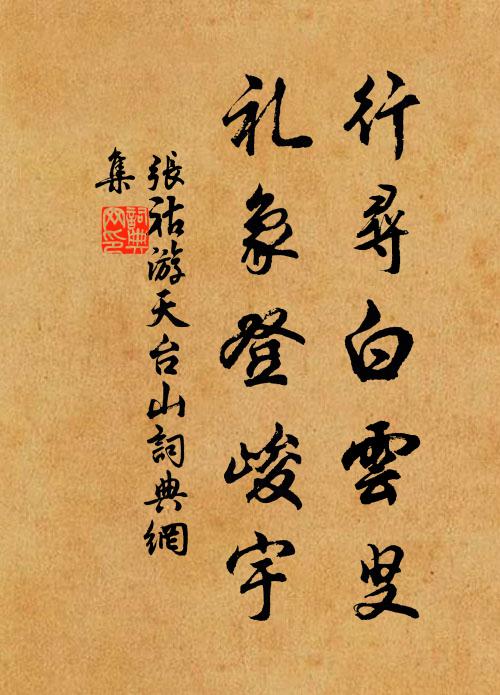 行尋白雲叟
礼象登峻宇
張祜游天台山詞典網
集
詞典
网印